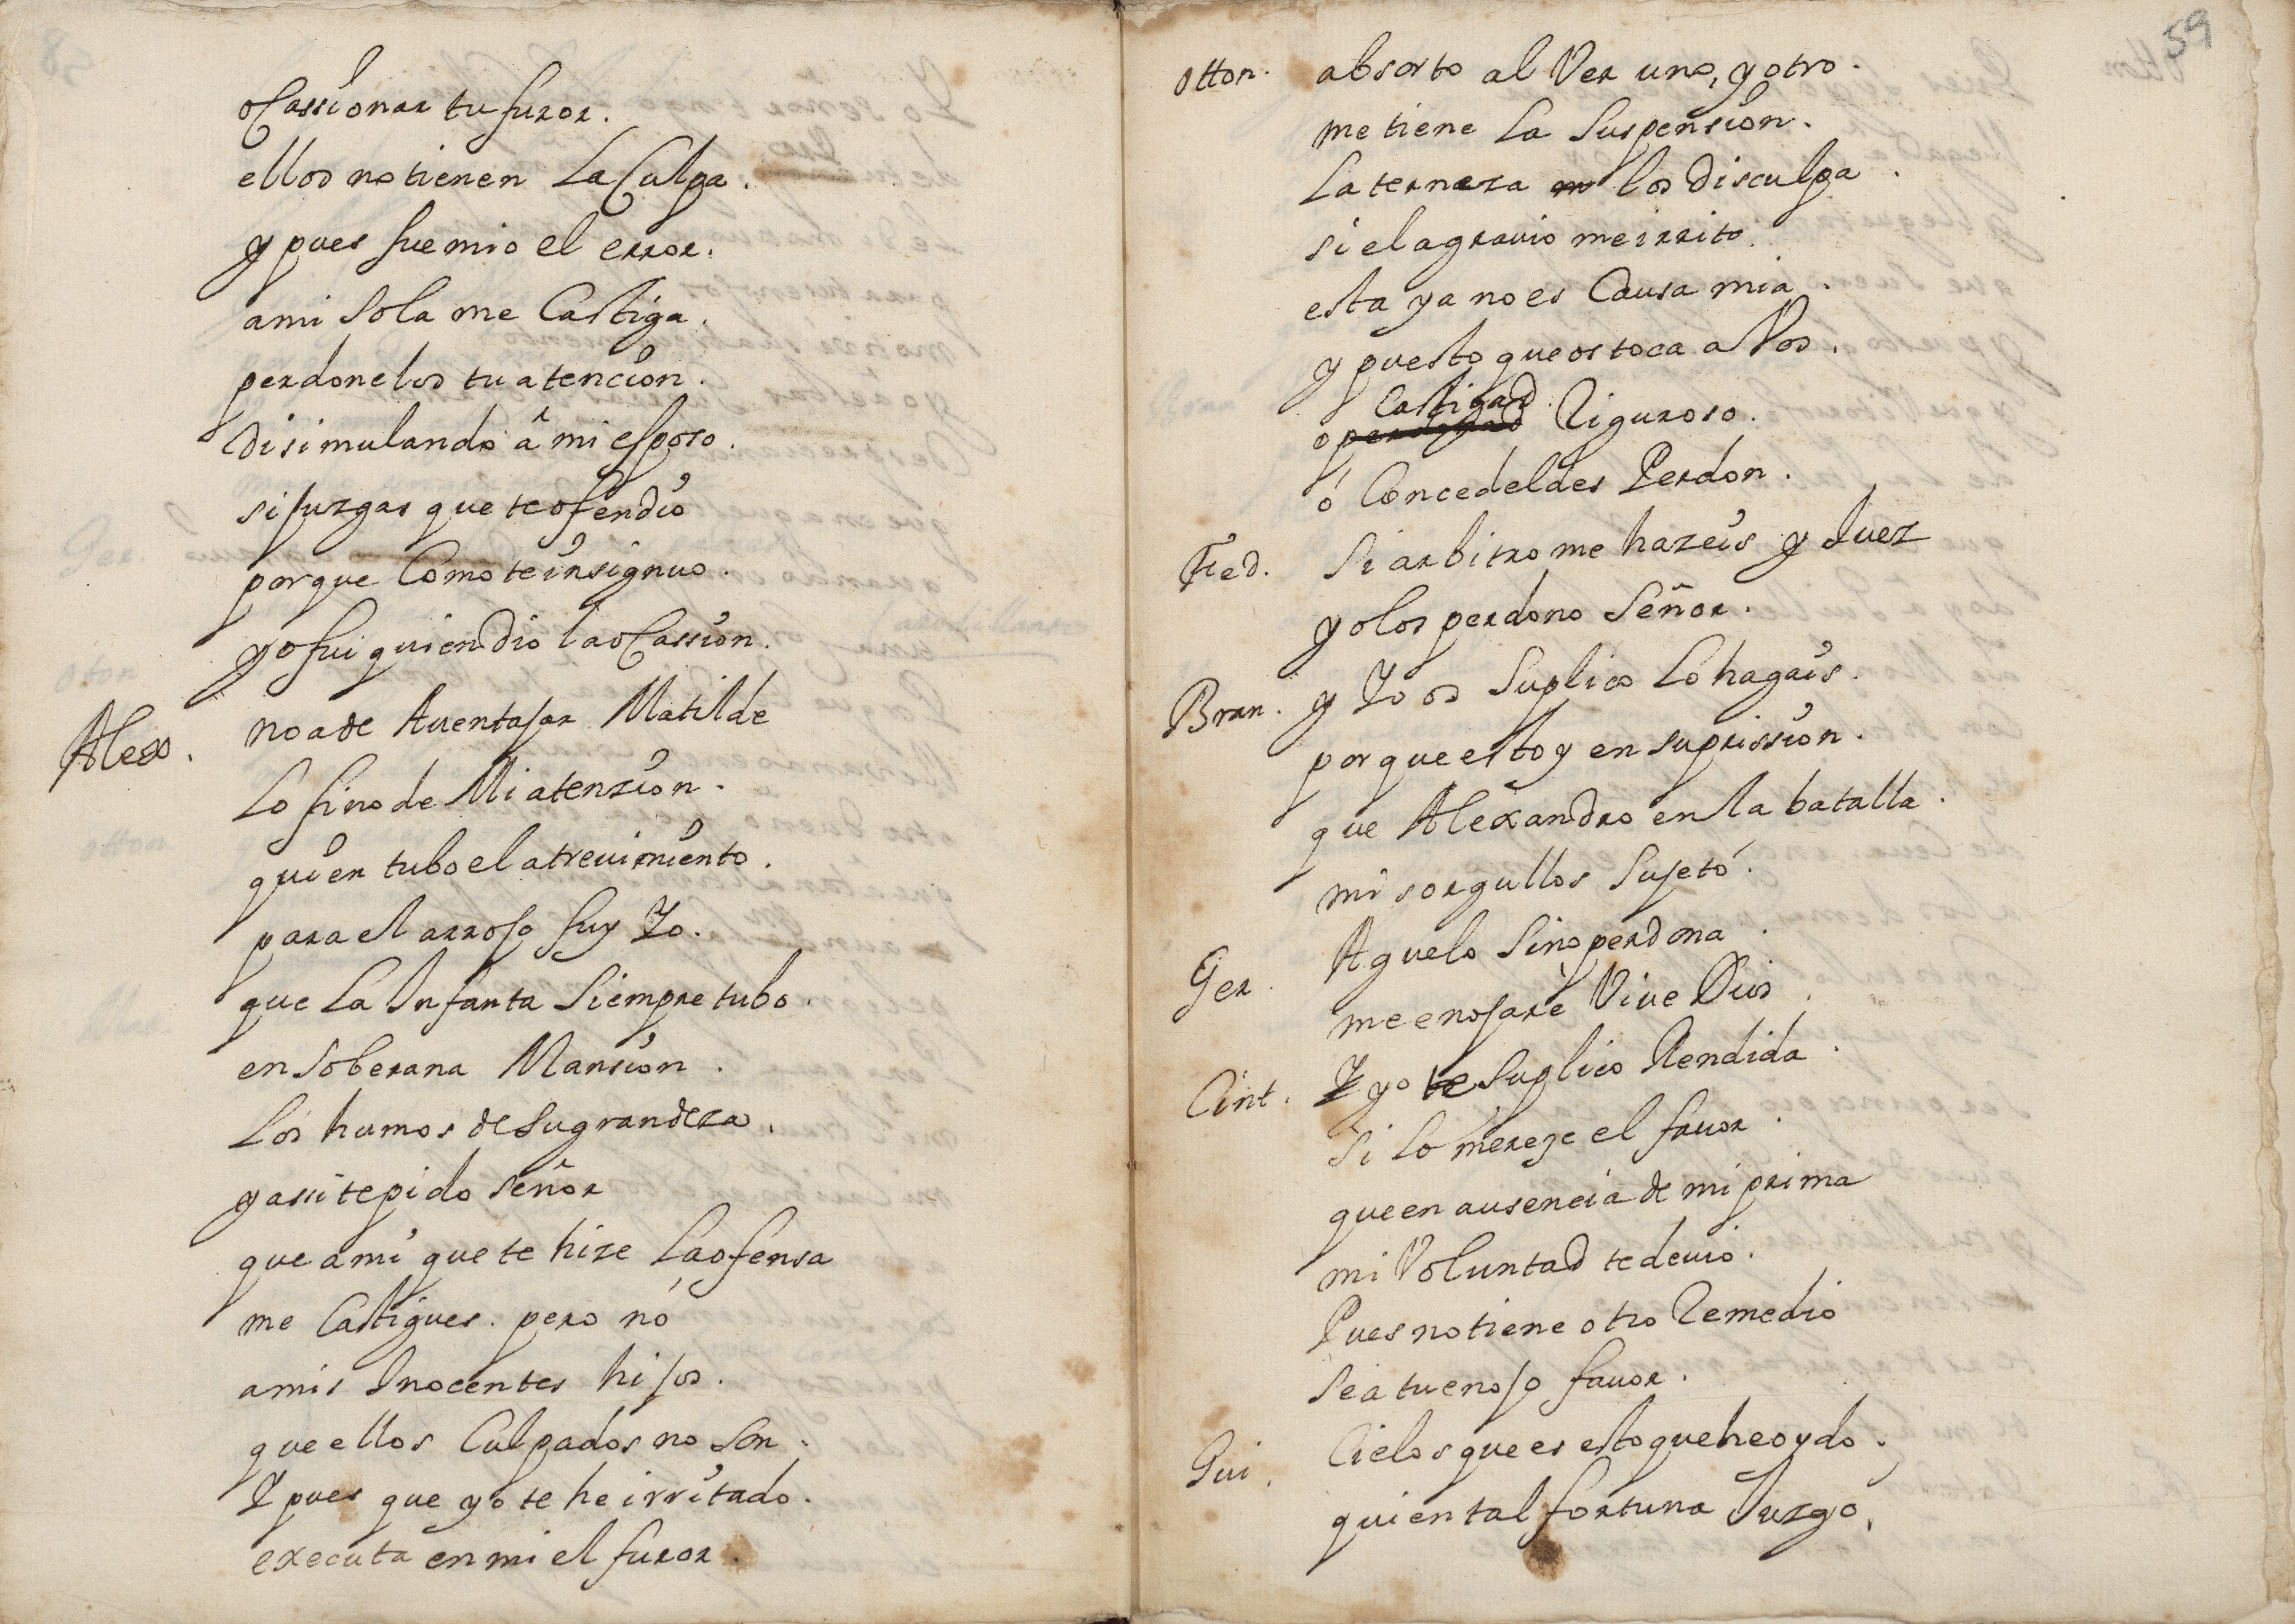 ocassionar tu furor.
ellos no tienen La Culpa.
y pues fue mio el error.
ami Sola me Castiga.
perdonelos tu atencion.
Disimulando â mi esposo.
si juzgas que te ofendio
porque Como te insignuo.
yo fui quien dio la ocassion.
Alex. no a de Auentajar Matilde
Lo fino de Mi atenzion.
quien tubo el atreuimiento.
para el arrojo fuy Yo.
que La Infanta Siempre tubo.
en Soberana Mansion.
Los humos de Su grandeza.
y assi te pido señor
que a mi que te hize La ofensa
me Castigues. pero nó
a mis Inocentes hijos.
que ellos Culpados no Son.
Y pues que yo te he irritado.
executa en mi el furor.
59
otton. absorto al Ver uno, y otro.
me tiene La Suspension.
La terneza los Disculpa.
si el agrauio me irrito.
esta ya no es Causa mia.
y puesto que os toca a Vos.
Castigad
o perdonad Riguroso.
ó Concedeldes Perdon.
Fed. Si arbitro me hazeis y Juez
yo los perdono Señor.
Bran. y Yo os Suplico Lo hagais.
porque estoy en su prission.
que Alexandro en la batalla.
mis orgullos Sujetó.
Ger. Aguelo Sino perdona.
me enojarè Vive Dios.
Cint. Y yo te Suplico Rendida.
Si Lo mereze el fauor.
que en ausencia de mi prima
mi Voluntad te deuio.
Pues no tiene otro Remedio
Sea tu enojo fauor.
Gui. Cielos que es esto que he oydo.
quien tal fortuna Juzgó.